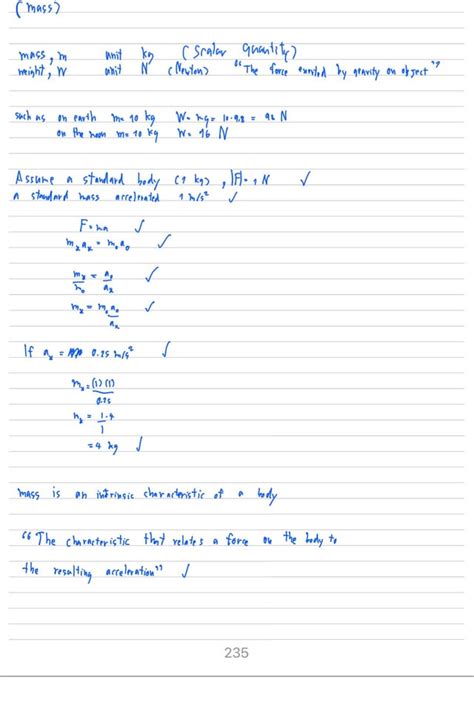 (mass)
mass, m unit kg (Scalar quantity)
weight, W unit N (Newton) "The force exerted by gravity on object"
such as on earth m=10 kg W=mg=10·9.8 = 98 N
on the moon m=10 kg W=16 N
Assume a standard body (1 kg), |F|=1 N ✓
a standard mass accelerated 1 m/s² ✓
F=ma ✓
mₓaₓ = m₀a₀ ✓
mₓ/m₀ = a₀/aₓ ✓
mₓ = m₀a₀/aₓ ✓
If aₓ = 0.25 m/s² ✓
mₓ = (1)(1)/0.25
mₓ = 1·4/1
=4 kg ✓
mass is an intrinsic characteristic of a body
"The characteristic that relates a force on the body to
the resulting acceleration" ✓
235